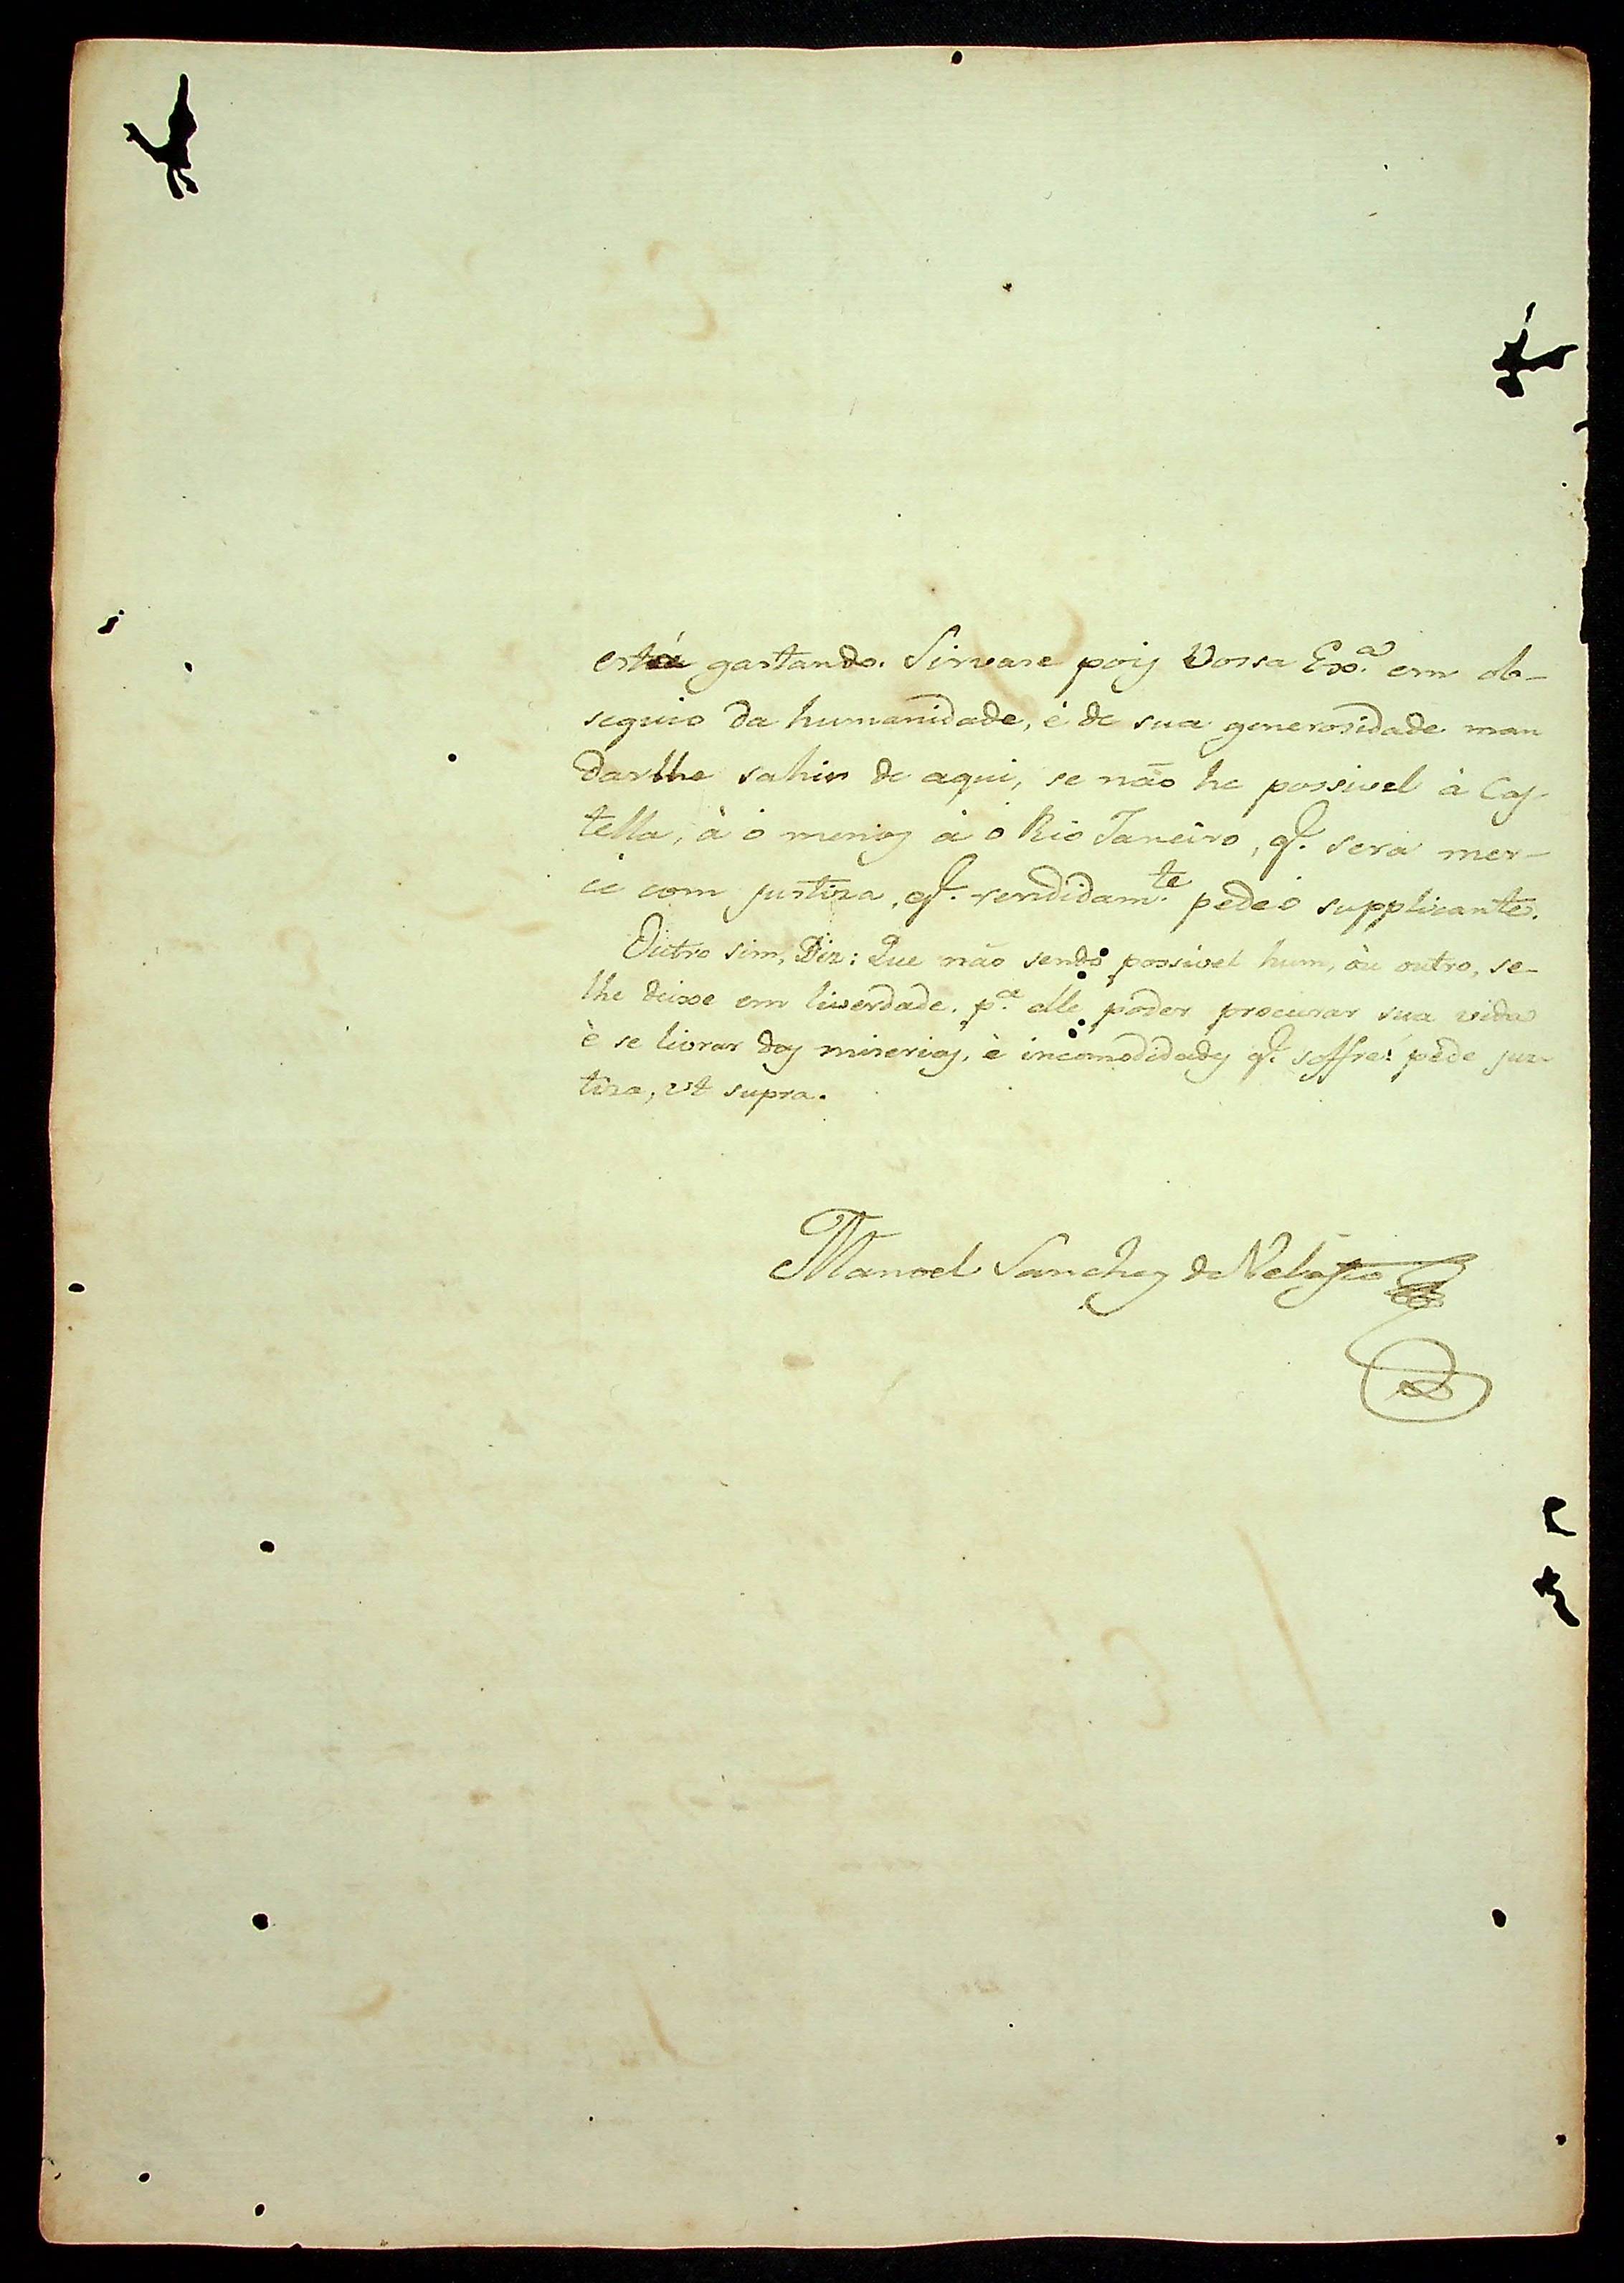 está gastando. Sirvase pois Vossa Exª. em ob-
sequio da humanidade, è de sua generosidade man
darlhe sahir de aqui, se não he possivel à Cas-
tella, à o menos à o Rio Janeiro, q̃. será mer-
ce com justiza, q̃. rendidam.te pede o supplicante.
Outro sim, Diz: Que não sendo possivel hum, òu outro, se-
lhe deixe em liverdade. pª. elle poder procurar sua vida
è se livrar das miserias, è incomodidades q̃. soffre: pede jus-
tiza, ut supra.
Manoel Sanchez de